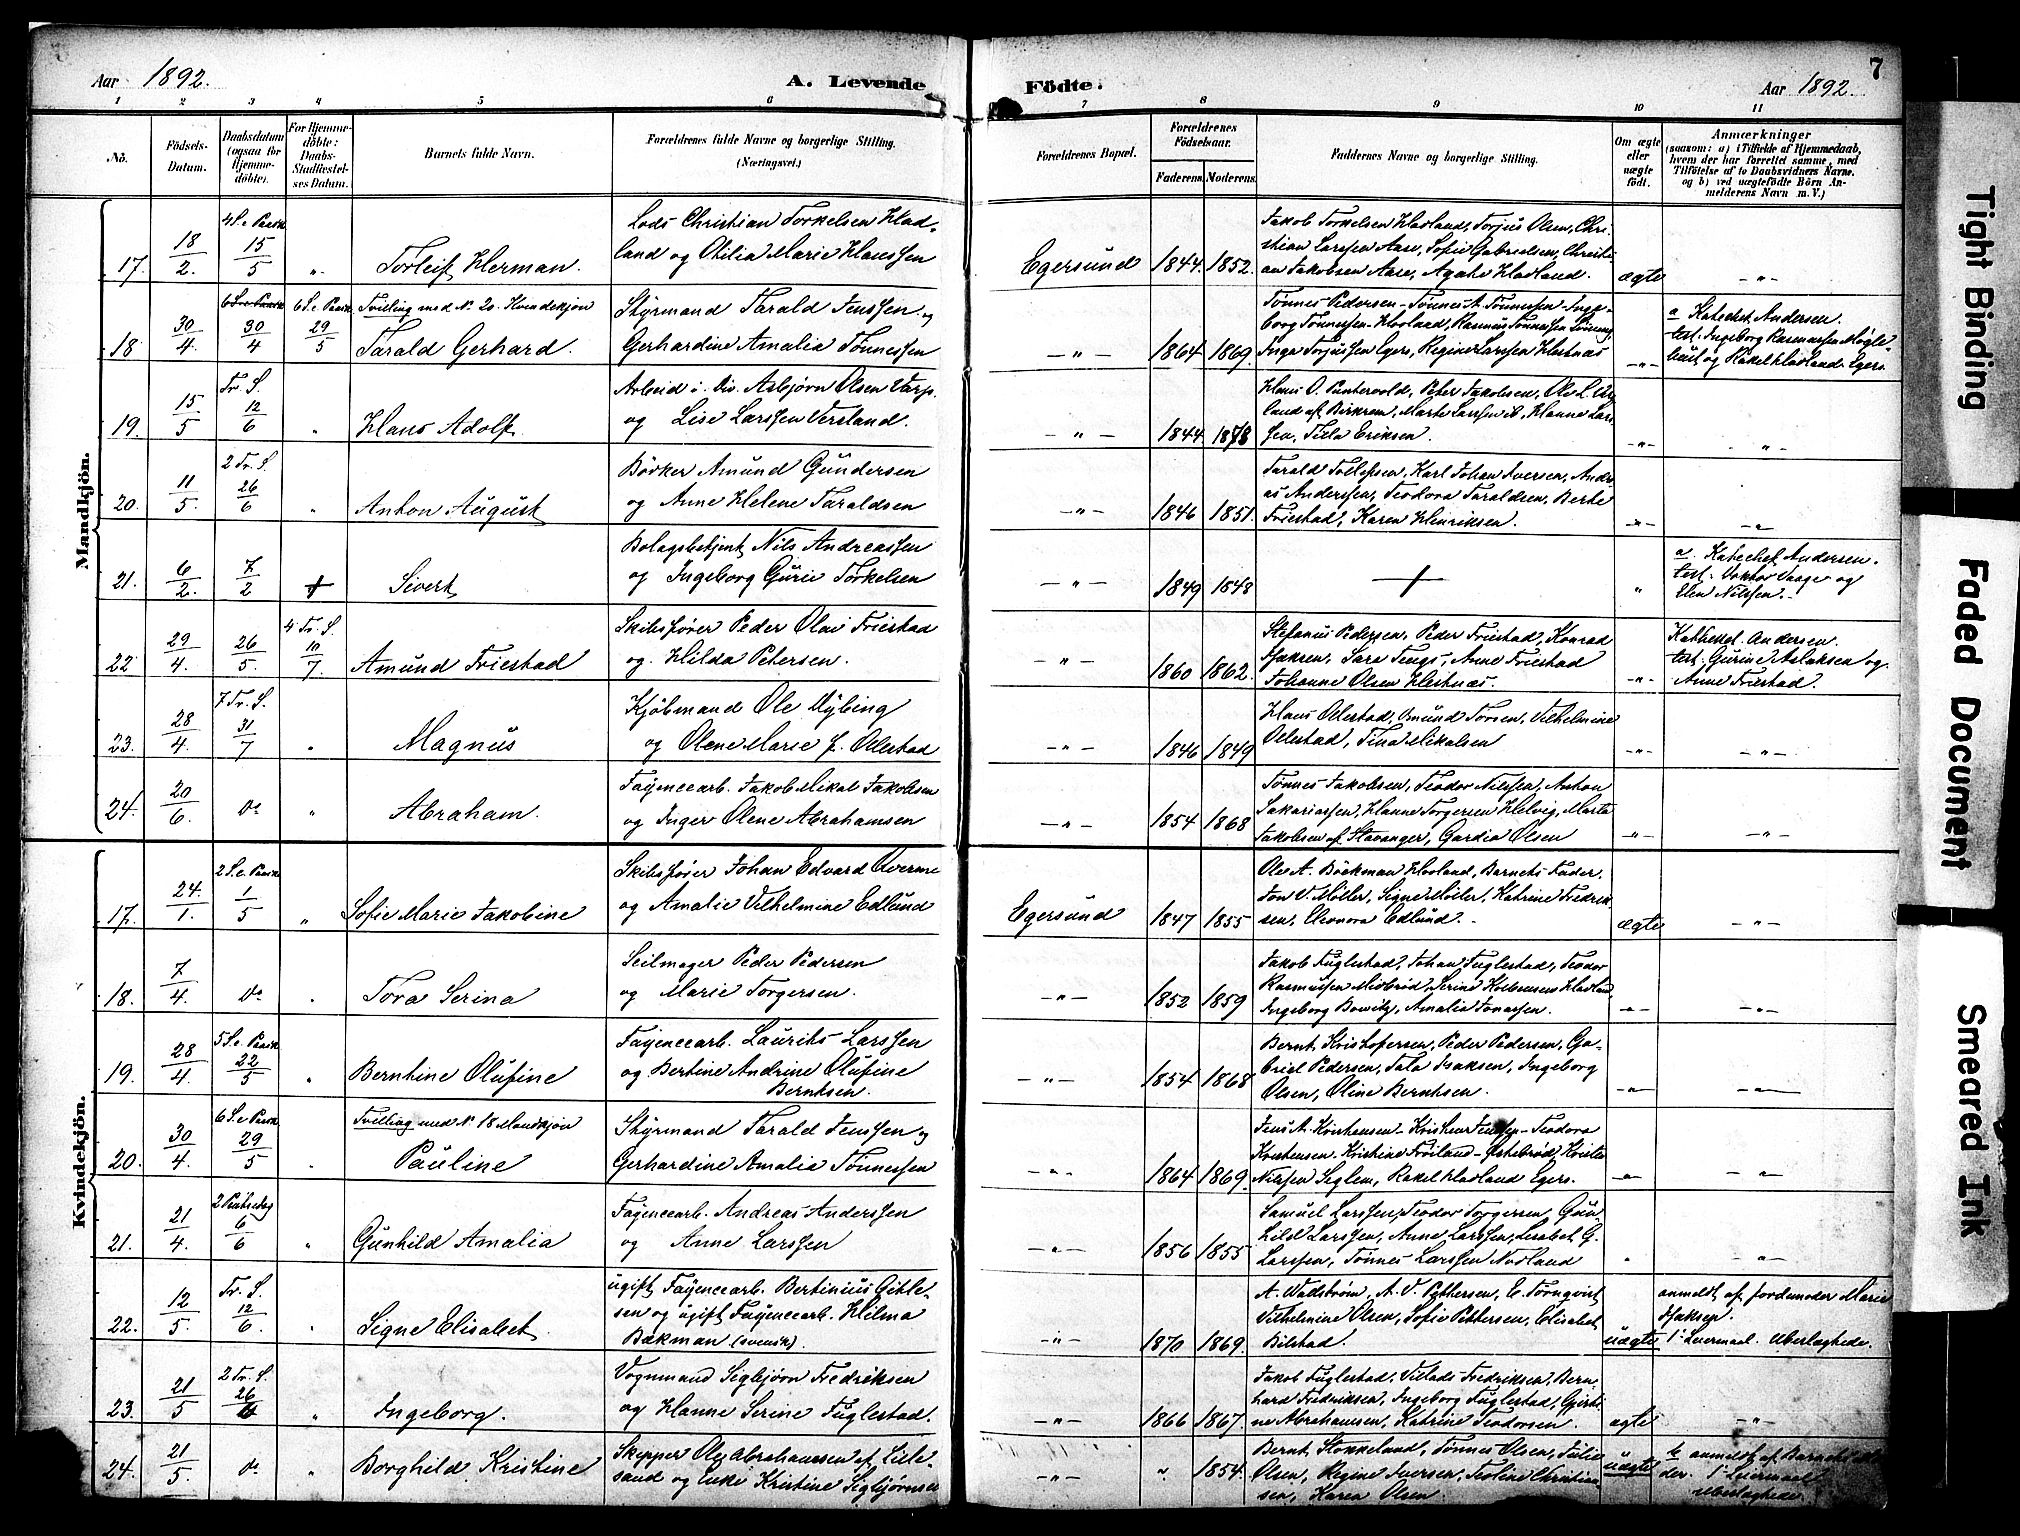 Aar 1892. A. Levende Födte. Aar 1892. 7
1 2 3 4 5 6 7 8 9 10 11
No. Födsels-Datum. Daabsdatum (ogsaa for Hjemmedöbte). For Hjemmedöbte: Daabs-Stadfæstelses Datum. Barnets fulde Navn. Forældrenes fulde Navne og borgerlige Stilling. (Næringsvei.) Forældrenes Bopæl. Forældrenes Födselsaar. Faderens. Moderens. Faddernes Navne og borgerlige Stilling. Om ægte eller uægte födt. Anmærkninger (saasom: a) i Tilfælde af Hjemmedaab, hvem der har forrettet samme, med Tilföielse af to Daabsvidners Navne. og b) ved uægtefödte Börn Anmelderens Navn m. V.)
Mandkjön.
17. 18/2. 4 S. e. Paask 15/5 " Torleif Herman.
Lods Christian Torkelsen Hladland og Otilia Marie Hanssen
Egersund 1844. 1852.
Jakob Torkelsen Hladland, Torjus Olsen, Christian Larssen Aase, Sofie Gabrielsen, Christian Jakobsen Aase, Agate Hladland. ægte "
18. 30/4. 30/4 6 S. e. Paask 29/5 Tvilling med N. 20. Kvindekjøn
Tarald Gerhard.
Styrmand Tarald Jenssen og
Gerhardine Amalia Tønnessen
" 1864 1869.
Tønnes Pedersen - Tønnes A. Tønnessen - Ingeborg Tønnessen - Hovland, Rasmus Tønnessen
Inga Torjussen Egers, Regine Larssen Hestnæs "
a Katechet Andersen.
test. Ingeborg Rasmussen
og Rakel Hladland Egers.
19. 15/5 Tr. S. 12/6 " Hans Adolf.
Arbeid i Div. Asbjørn Olsen
og Lise Larssen Versland.
" 1844 1878
Hans O. Puntervold, Peter Jakobsen, Ole L.
land af Birkrem, Marte Larssen ib, Hanne Larssen, Tula Eriksen. " "
20. 11/5. 2 Tr. S. 26/6 " Anton August
Bødker Amund Gundersen
og Anne Helene Taraldsen
" 1846 1851.
Tarald Tollefsen, Karl Johan Iversen, Andreas Anderssen, Teodora Taraldsen, Berte
Friestad, Karen Henriksen. " "
21. 6/2. 7/2 + Sivert
Bolagsbetjent Nils Andreassen
og Ingeborg Gurie Torkelsen
" 1849 1848 + "
a. Katechet Andersen.
test. Doktor Vaage og
Elen Nilssen.
22 29/4. 26/5. 4 Tr. S. 10/7. Amund Friestad
Skibsfører Peder Olai Friestad
og Hilda Petersen.
" 1860 1862.
Stefanus Pedersen, Peder Friestad, Konrad
Isaksen, Sara Tengs, Anne Friestad
Johanne Olsen Hestnæs. "
Katechet Andersen.
test. Gurine Aslaksen og
Anne Friestad.
23. 28/4. 7 Tr. S. 31/7 " Magnus
Kjøbmand Ole Nybing
og Olene Marie f. Ollestad
" 1846 1849
Hans Ollestad, Omund Torsen, Vilhelmine
Ollestad, Tina Mikalsen " "
24. 20/6. do " Abraham.
Fayencearb. Jakob Mikal Jakobsen
og Inger Olene Abrahamsen
" 1854 1868
Tønnes Jakobsen, Teodor Nilssen, Anton
Sakariassen, Hanne Torgersen Helvig, Marta
Jakobsen af Stavanger, Gardia Olsen " "
Kvindekjön.
17. 24./1. 2 S. e. Paask 1/5 " Sofie Marie Jakobine
Skibsfører Johan Edvard Averme
og Amalie Vilhelmine Edlund
Egersund 1847 1855
Ole A. Bøckman Hovland, Barnets Fader.
Jon V. Møller, Signe Møller, Katrine Fredriksen, Eleonora Edlund. ægte "
18. 7/4. do " Tora Serina
Seilmager Peder Pedersen
og Marie Torgersen.
" 1852 1859
Jakob Fuglestad, Johan Fuglestad, Teodor
Rasmussen Midbrød, Serine Hladland
Ingeborg Bowitz, Amalia Jonassen. " "
19. 28/4 5 S. e. Paask 22/5 " Berntine Olufine
Fayencearb. Laurits Larssen
og Bertine Andrine Olufine
Berntsen.
" 1854 1868
Bernt Kristofersen, Peder Pedersen, Gabriel Pedersen, Tala Isaksen, Ingeborg
Olsen, Oline Berntsen. " "
20. 30/4 6 S. e. Paask 29/5 " Tvilling med N. 18 Mandkjøn
Pauline
Styrmand Tarald Jenssen og
Gerhardine Amalia Tønnessen
" 1864 1869.
Jens A. Kristensen - Kristen Jenssen - Teodora
Kristensen. Kristine Frøiland -
Nilssen Seglem, Rakel Hladland Egers. " "
21. 21/4. 2 Pintsedag 6/6 " Gunhild Amalia
Fayencearb. Andreas Anderssen
og Anne Larssen
" 1856 1855
Samuel Larssen, Teodor Torgersen, Gunhild Larssen, Anne Larssen, Lisabet G.
Larssen, Tønnes Larssen Nodland " "
22. 12/5. Tr. S. 12/6. " Signe Elisabet.
ugift Fayencearb. Bertinius Gitlesen og ugift Fayencearb. Hilma
Bækman (svensk).
" 1870 1869.
A. Wadstrøm, A. V. Pettersen, E. Tørnqvist
Vilhelmine Olsen, Sofie Pettersen, Elisabet
Bilstad. uægte
anmeldt af Jordmoder Marie
Isaksen.
1ste Leiermaal. Uberlaghede.
23. 21/5 2 Tr. S. 26/6 " Ingeborg.
Vognmand Segbjørn Fredriksen
og Hanne Serine Fuglestad.
" 1866 1867.
Jakob Fuglestad, Villads Fredriksen, Bernhard Fredriksen, Ingeborg Fuglestad, Gjertine Abrahamsen, Katrine Teodorsen. ægte "
24. 21/5. do " Borghild Kristine
Skipper Ole Abrahamsen af Lillesand og Enke Kristine Segbjørnsen
" " 1854.
Bernt Stokkeland, Tønnes Olsen, Julie
Olsen, Regine Iversen, Teoline Christiansen, Karen Olsen. uægte
b anmeldt af Barnets Moder. 1ste Leiermaal
Uberlaghede.
Tight Binding
Faded Document
Smeared Ink